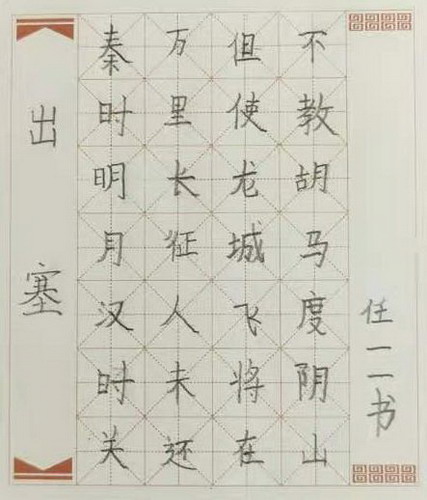 出塞
秦时明月汉时关
万里长征人未还
但使龙城飞将在
不教胡马度阴山
任一一书